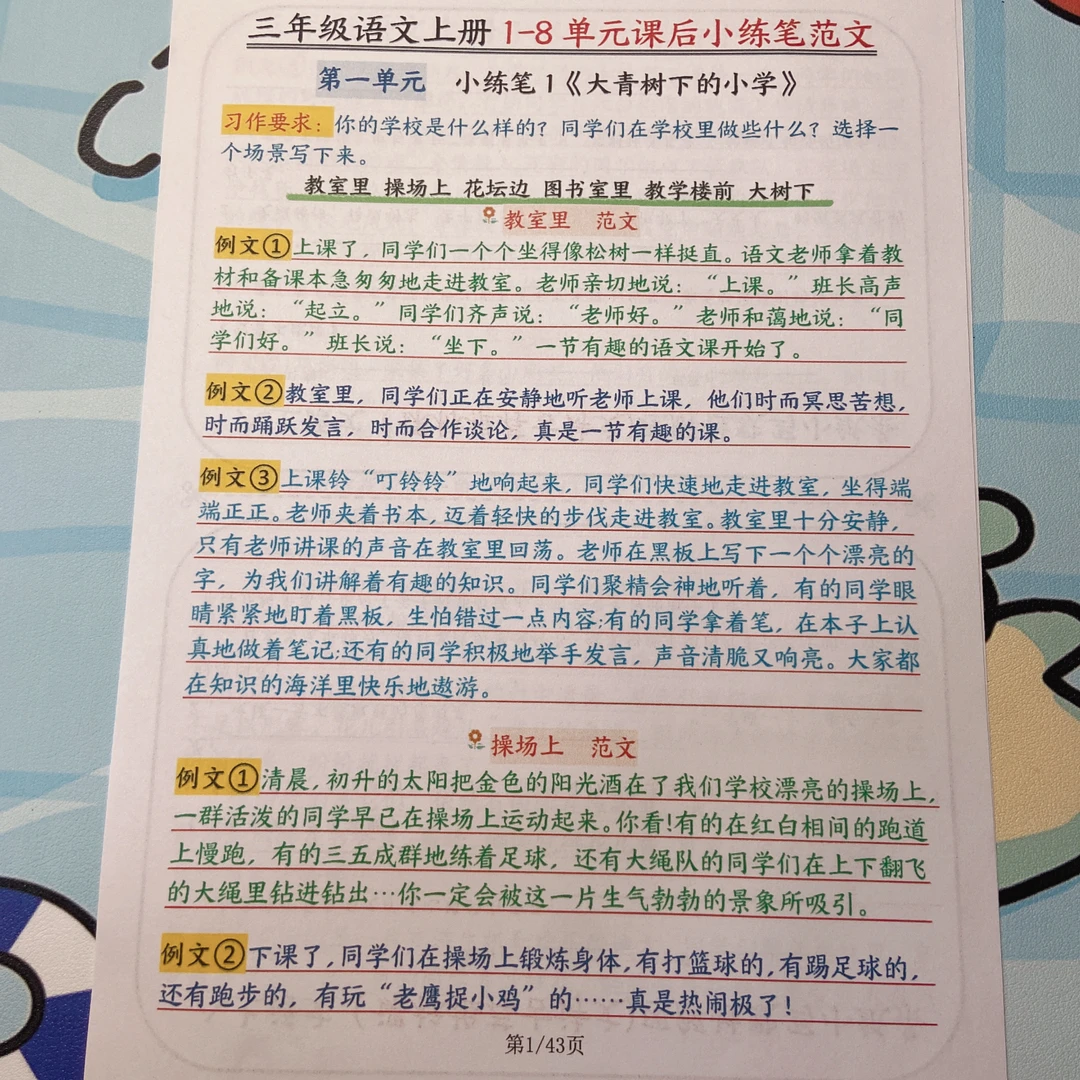 三年级语文上册 1-8 单元课后小练笔范文
第一单元 小练笔1《大青树下的小学》
习作要求：你的学校是什么样的？同学们在学校里做些什么？选择一
个场景写下来。
教室里 操场上 花坛边 图书室里 教学楼前 大树下
教室里 范文
例文①上课了，同学们一个个坐得像松树一样挺直。语文老师拿着教
材和备课本急匆匆地走进教室。老师亲切地说：“上课。”班长高声
地说：“起立。”同学们齐声说：“老师好。”老师和蔼地说：“同
学们好。”班长说：“坐下。”一节有趣的语文课开始了。
例文②教室里，同学们正在安静地听老师上课，他们时而冥思苦想，
时而踊跃发言，时而合作谈论，真是一节有趣的课。
例文③上课铃“叮铃铃”地响起来，同学们快速地走进教室，坐得端
端正正。老师夹着书本，迈着轻快的步伐走进教室。教室里十分安静，
只有老师讲课的声音在教室里回荡。老师在黑板上写下一个个漂亮的
字，为我们讲解着有趣的知识。同学们聚精会神地听着，有的同学眼
睛紧紧地盯着黑板，生怕错过一点内容;有的同学拿着笔，在本子上认
真地做着笔记;还有的同学积极地举手发言，声音清脆又响亮。大家都
在知识的海洋里快乐地遨游。
操场上 范文
例文①清晨，初升的太阳把金色的阳光酒在了我们学校漂亮的操场上，
一群活泼的同学早已在操场上运动起来。你看!有的在红白相间的跑道
上慢跑，有的三五成群地练着足球，还有大绳队的同学们在上下翻飞
的大绳里钻进钻出…你一定会被这一片生气勃勃的景象所吸引。
例文②下课了，同学们在操场上锻炼身体，有打篮球的，有踢足球的，
还有跑步的，有玩“老鹰捉小鸡”的……真是热闹极了！
第1/43页